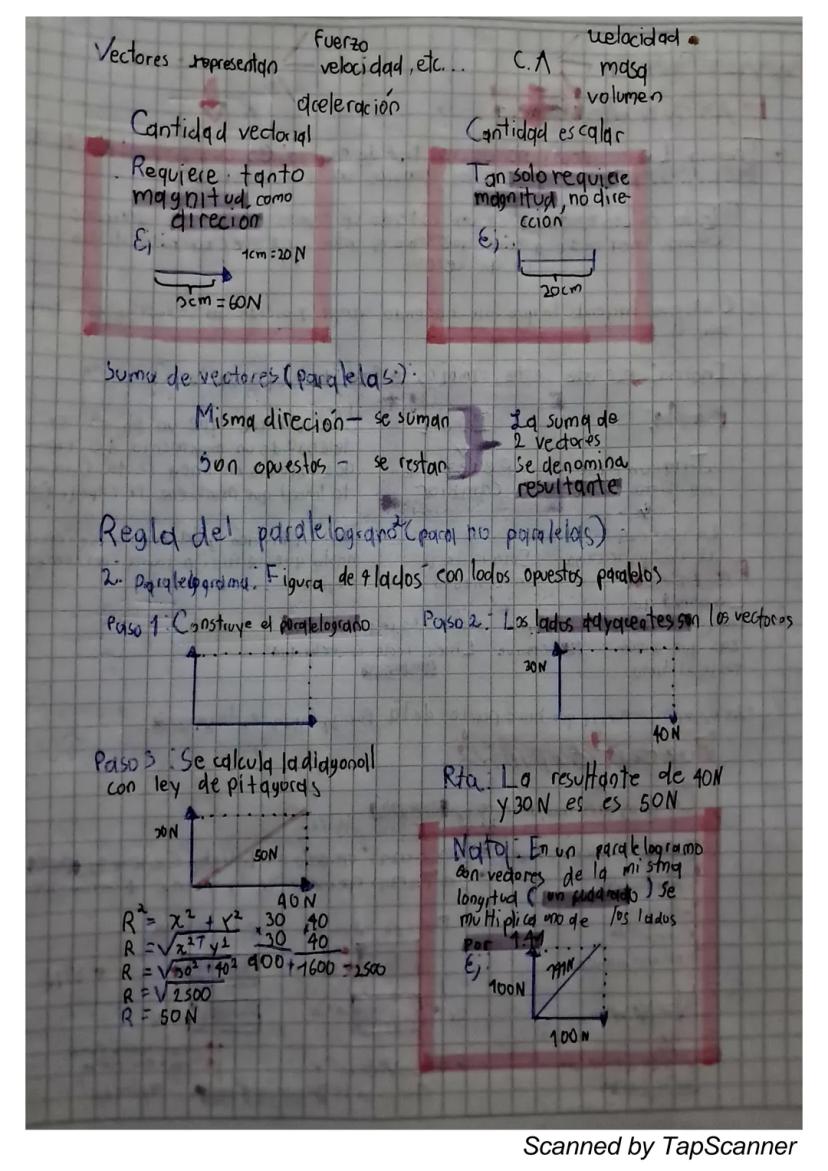 Vectores representan
fuerzo
velocidad, etc...
aceleración
C.A
velocidad
masa
volumen
Cantidad vectorial
Requiere tanto
magnitud, como
direcion
Ej:
1cm = 20 N
3cm = 60N
Cantidad escalar
Tan solo requiere
magnitud, no dire-
cción
Ej:
20cm
Suma de vectores (paralelas):
Misma direción - se suman
Son opuestos - se restan
La suma de
2 vectores
se denomina
resultante
Regla del paralelogramo (para no paralelas)
2. paralelogramo: Figura de 4 lados con lados opuestos paralelos
Paso 1: Construye el paralelogramo
Paso 2: Los lados adyacentes son los vectores
30N
40 N
Paso 3: Se calcula la diagonall
con ley de pitagoras
30N
50N
40 N
R² = x² + y²
R = √x² + y²
R = √30² + 40²
R = √2500
R = 50 N
30 40
30 40
900 + 1600 = 2500
Rta: La resultante de 40N
y 30N es es 50N
Nota: En un paralelogramo
con vectores de la misma
longitud (un cuadrado) se
multiplica uno de los lados
por 1.41
Ej:
100N
141N
100 N
Scanned by TapScanner